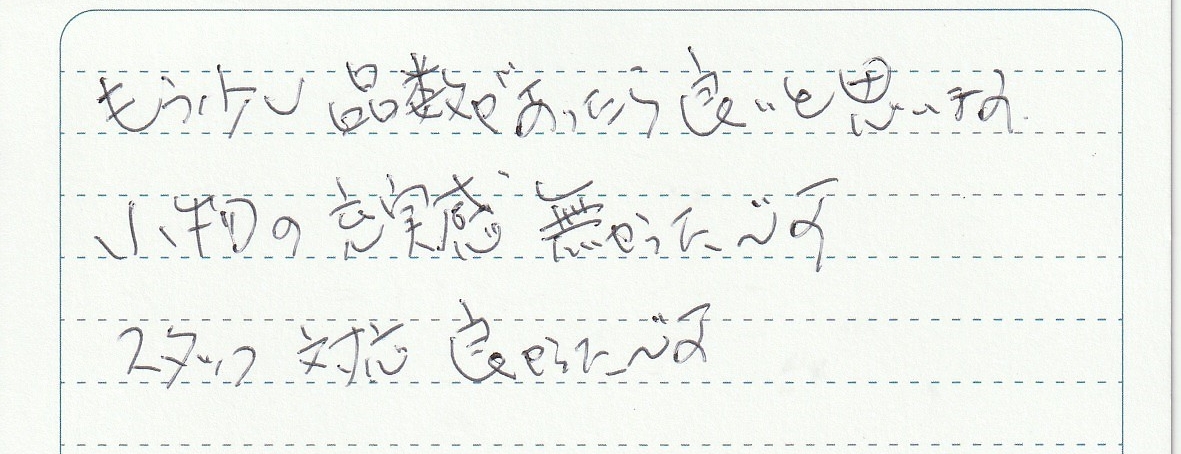 もう少し品数があったら良いと思います
小物の充実感無かったです
スタッフ対応良かったです